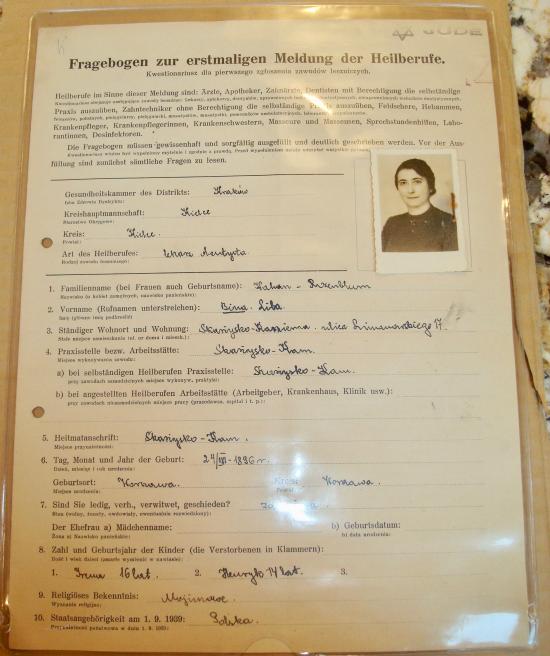 JUDE
Fragebogen zur erstmaligen Meldung der Heilberufe.
Kwestionariusz dla pierwszego zgłoszenia zawodów leczniczych.
Heilberufe im Sinne dieser Meldung sind: Ärzte, Apotheker, Zahnärzte, Dentisten mit Berechtigung die selbständige
Praxis auszuüben, Zahntechniker ohne Berechtigung die selbständige Praxis auszuüben, Feldschere, Hebammen,
Krankenpfleger, Krankenpflegerinnen, Krankenschwestern, Masseure und Masseusen, Sprechstundenhilfen, Labo-
rantinnen, Desinfektoren.
Die Fragebogen müssen gewissenhaft und sorgfältig ausgefüllt und deutlich geschrieben werden. Vor der Aus-
füllung sind zunächst sämtliche Fragen zu lesen.
Gesundheitskammer des Distrikts: Kraków
Izba Zdrowia Dystryktu:
Kreishauptmannschaft: Kielce
Starostwo Okręgowe:
Kreis: Kielce.
Powiat:
Art des Heilberufes: lekarz dentysta
Rodzaj zawodu leczniczego:
1. Familienname (bei Frauen auch Geburtsname):
Nazwisko (u kobiet zamężnych, nazwisko panieńskie):
2. Vorname (Rufnamen unterstreichen): Bina Liba
Imię (główne imię podkreślić)
3. Ständiger Wohnort und Wohnung: Skarżysko-Kamienna
Stałe miejsce zamieszkania
4. Praxisstelle bezw. Arbeitsstätte: Skarżysko-Kam.
Miejsce wykonywania zawodu:
a) bei selbständigen Heilberufen Praxisstelle: Skarżysko-Kam.
przy zawodach samodzielnych miejsce wykonyw. praktyki:
b) bei angestellten Heilberufen Arbeitsstätte (Arbeitgeber, Krankenhaus, Klinik usw.):
przy zawodach niesamodzielnych miejsce pracy (pracodawca, szpital i t. p.):
5. Heimatanschrift: Skarżysko-Kam.
Miejsce przynależności:
6. Tag, Monat und Jahr der Geburt: 1896 r.
Dzień, miesiąc i rok urodzenia:
Geburtsort: Warszawa. Kreis: Warszawa.
Miejsce urodzenia: Powiat:
7. Sind Sie ledig, verh., verwitwet, geschieden?
Stan (wolny, żonaty, owdowiały, ewentualnie rozwiedziony):
Der Ehefrau a) Mädchenname: b) Geburtsdatum:
Żona a) Nazwisko panieńskie: b) data urodzenia:
8. Zahl und Geburtsjahr der Kinder (die Verstorbenen in Klammern):
Ilość i wiek dzieci (zmarłe wymienić w nawiasie):
1. Irena 16 lat. 2. Henryk 14 lat. 3.
9. Religiöses Bekenntnis: Mojżeszowe.
Wyznanie religijne:
10. Staatsangehörigkeit am 1. 9. 1939: Polska.
Przynależność państwowa w dniu 1. 9. 1939: